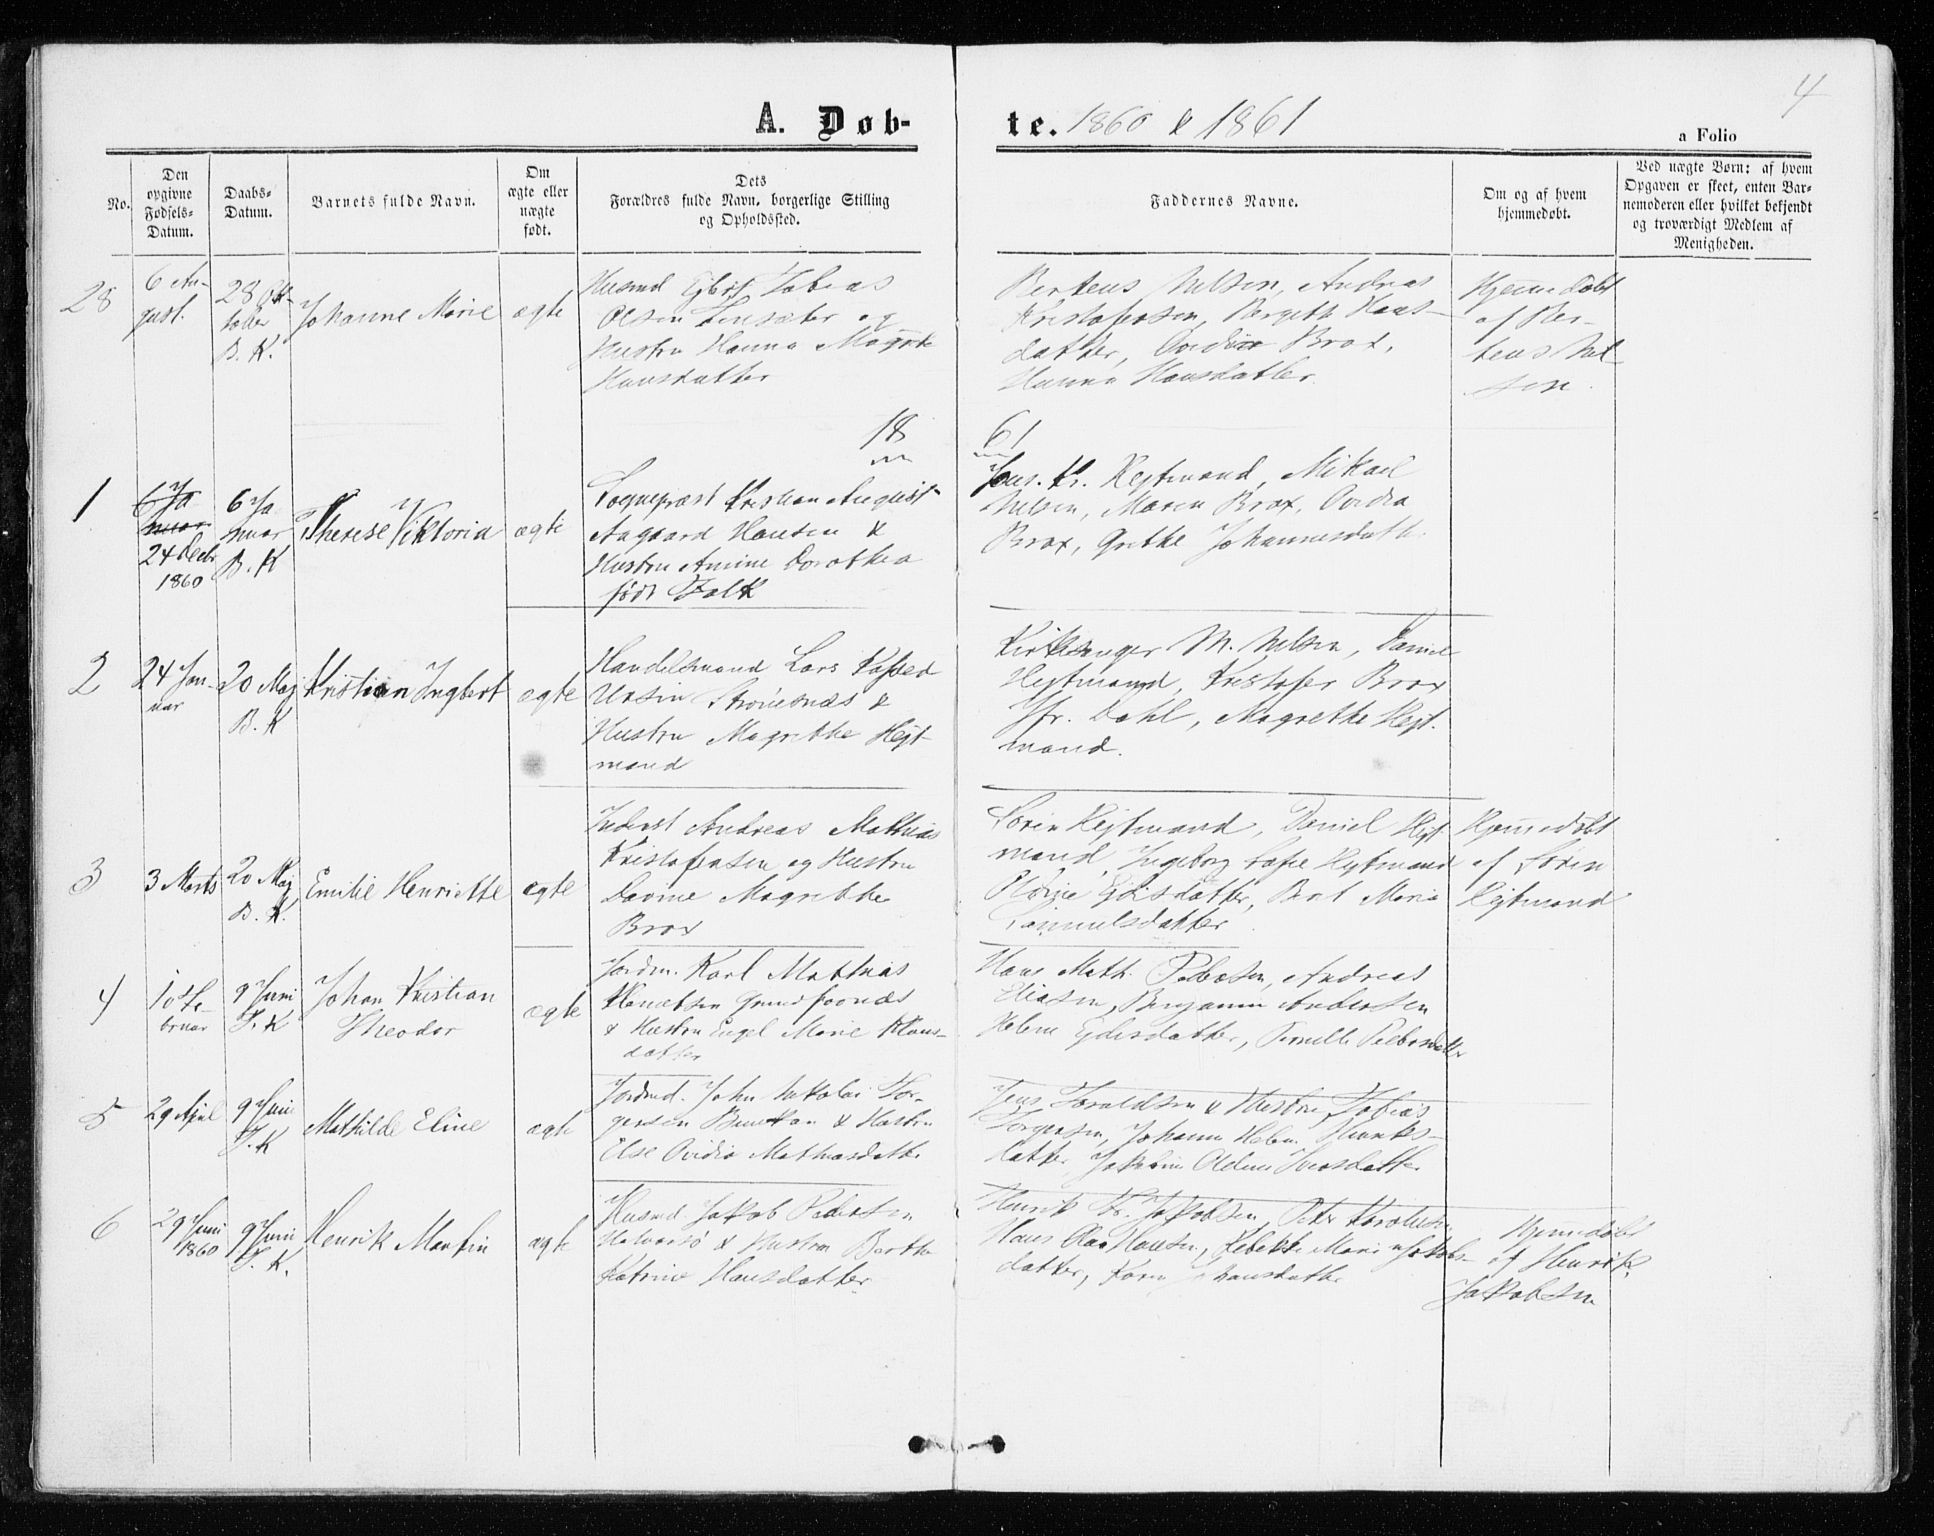 4
A. Døb-
te. 1860 & 1861
a Folio
No.
Den
opgivne
Fødsels-
Datum.
Daabs-
Datum.
Barnets fulde Navn.
Om
ægte eller
uægte
født.
Dets
Forældres fulde Navn, borgerlige Stilling
og Opholdssted.
Faddernes Navne.
Om og af hvem
hjemmedøbt.
Ved uægte Børn: af hvem
Opgaven er skeet, enten Bar-
nemoderen eller hvilket bekjendt
og troværdigt Medlem af
Menigheden.
28
6 Au-
gust.
28 Ok-
tober
B. K.
Johanne Marie
ægte
Husmd Tobias
Olsen og
Hustru Hanna Magrete
Hansdatter
Berteus Nilsen, Andreas
Kristofersen, Bergith Hans-
datter, Brox,
Hanna Hansdatter.
Hjemmedøbt
af Ber-
teus Nil-
sen.
18
61
1
6 Ja
nuar
24 Decbr
1860
6 Ja
nuar
B. K
Therese Viktoria
ægte
Sognepræst Kristian August
Aagaard Hansen &
Hustru Amine Dorothea
født Falk
Jens. Kr. Hejtmand, Mikael
Nilsen, Maren Brox, Ovidia
Brox, Grethe Johannesdatt.
2
24 Jan-
uar
20 Maj
B. K
Kristian Ingbert
ægte
Handelsmand Lars Kasper
Ursin &
Hustru Magrethe Hejt-
mand
Kirkesanger M. Nilsen, Daniel
Hejtmand, Kristofer Brox
Jfr. Dahl, Magrethe Hejt-
mand.
3
3 Marts
20 Maj
B. K.
Emilie Henriette
ægte
Inderst Andreas Mathias
Kristofersen og Hustru
Davine Magrethe
Brox
Sørin Hejtmand, Daniel Hejt-
mand, Ingeborg Hejtmand
Berit Maria
Samuelsdatter.
Hjemmedøbt
af Sørin
Hejtmand
4
10 Fe-
bruar
9 Juni
T. K
Johan Kristian
Theodor
ægte
Jordm. Karl Mathias
Grundfoornæs
& Hustru Engel Marie Klaus-
datter
Hans Math. Pedersen, Andreas
Eliasen, Benjamin Andersen
Helene Pernille Pedersdatter
5
29 April
9 Juni
T. K
Mathilde Eline
ægte
Jordmd. John Nikolai Tor-
gersen & Hustru
Else Ovidia Mathiasdatter
Jens Haraldsen & Hustru, Tobias
Torgersen, Johanna Helene Henriks-
datter
6
29 Juni
1860
9 Juni
T. K.
Henrik Martin
ægte
Husmd Jakob Pedersen
& Hustru Berthe
Katrine Hansdatter
Henrik Kr. Jakobsen, Peter Karolusen
Hans Olaa Hansen, Rebekka Maria Jakobs-
datter, Karen Johansdatter
Hjemmedøbt
af Henrik
Jakobsen